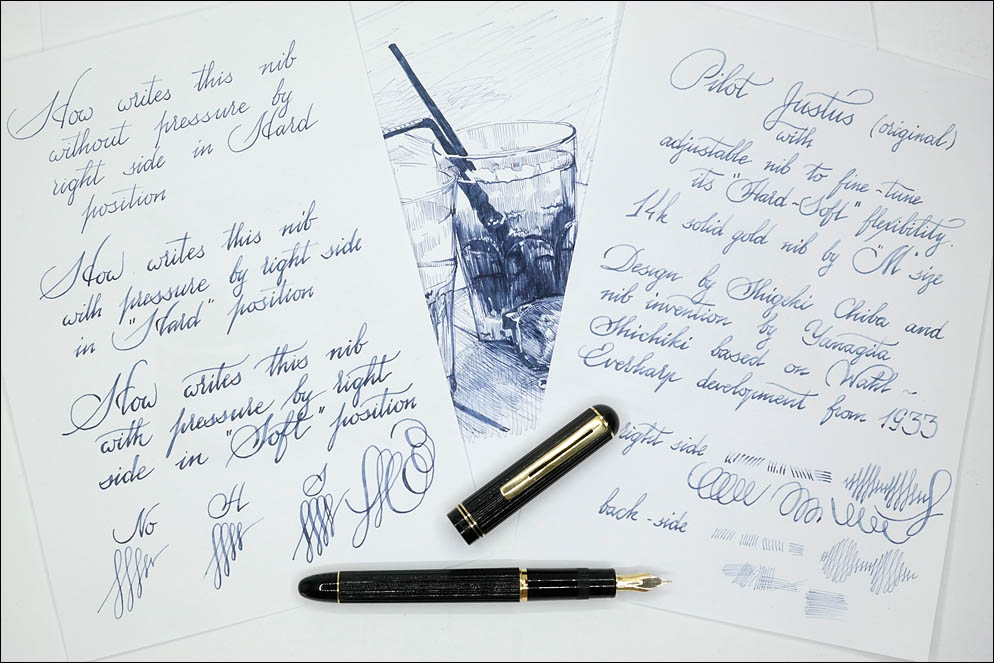 How writes this nib
without pressure by
right side in Hard
position
How writes this nib
with pressure by right side
in "Hard" position
How writes this nib
with pressure by right
side in "Soft" position
No H S
Pilot Justus (original)
with
adjustable nib to fine-tune
its "Hard-Soft" flexibility.
14k solid gold nib by "M" size
Design by Shigeki Chiba and
nib invention by Yanagita
Shichiki based on Wahl-
Everharp development from 1933
right side
back-side